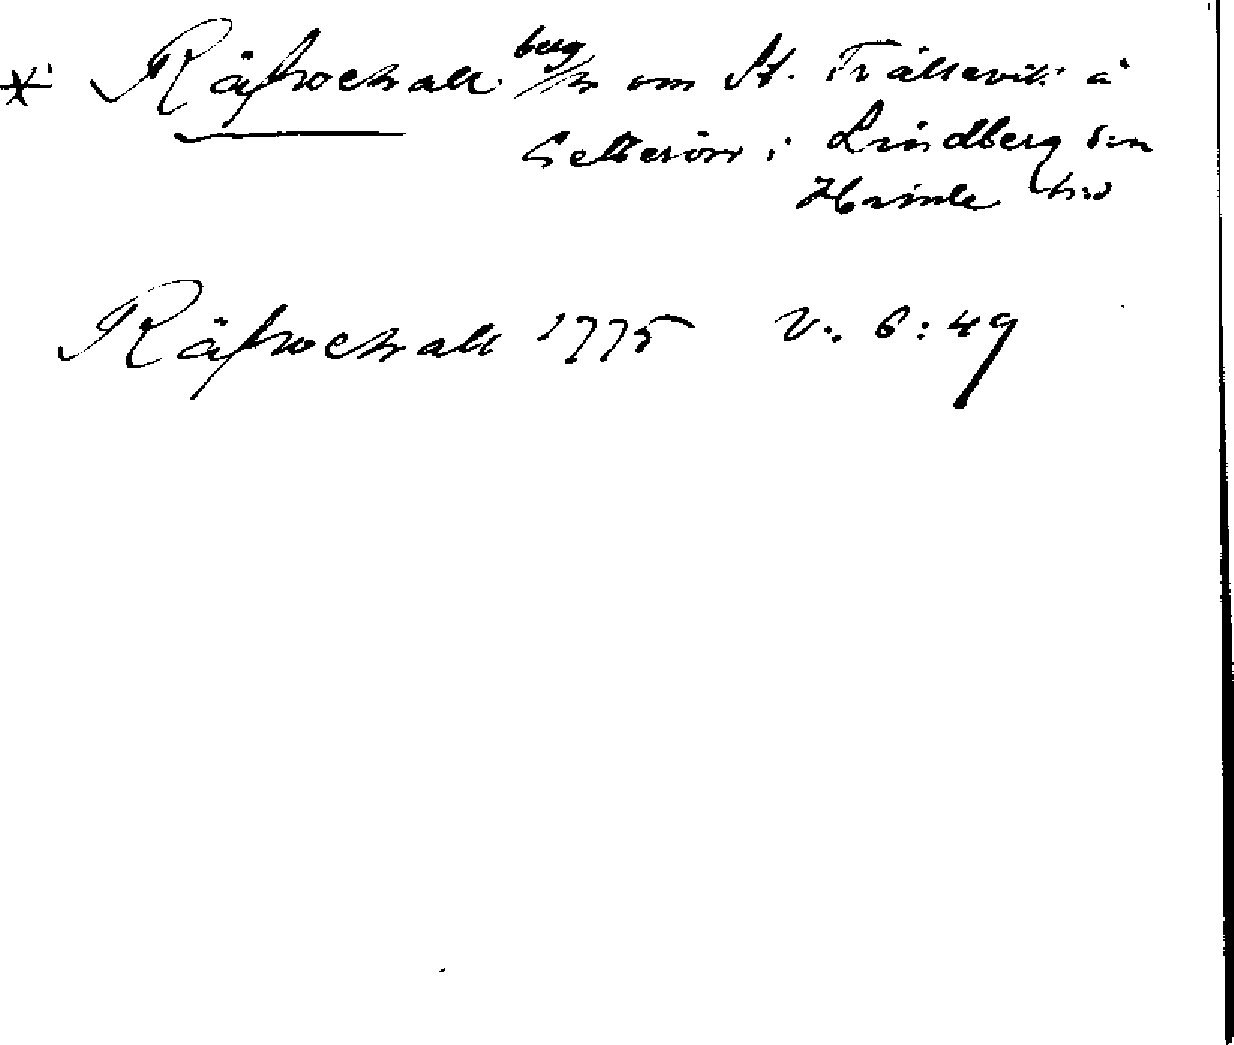 * Räfwehall berg/h om St. Trälleviks å
Getterön i Lindberg sn
Himle hd
Räfwehall 1775 V: 6:49